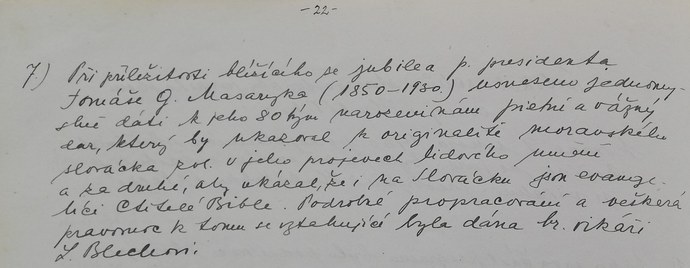 -22-
7) Při příležitosti blížícího se jubilea p. presidenta
Tomáše G. Masaryka (1850-1930) usneseno jednomy-
slně dáti k jeho 80tým narozeninám pietní a vážný
dar, který by ukazoval k originalitě moravského
slovácka v jeho projevech lidového umění
a za druhé, aby ukázal, že i na Slovácku jsou evange-
líci ctitelé Bible. Podrobné propracování a veškerá
pravomoc k tomu se vztahující byla dána br. vikáři
Blechovi.